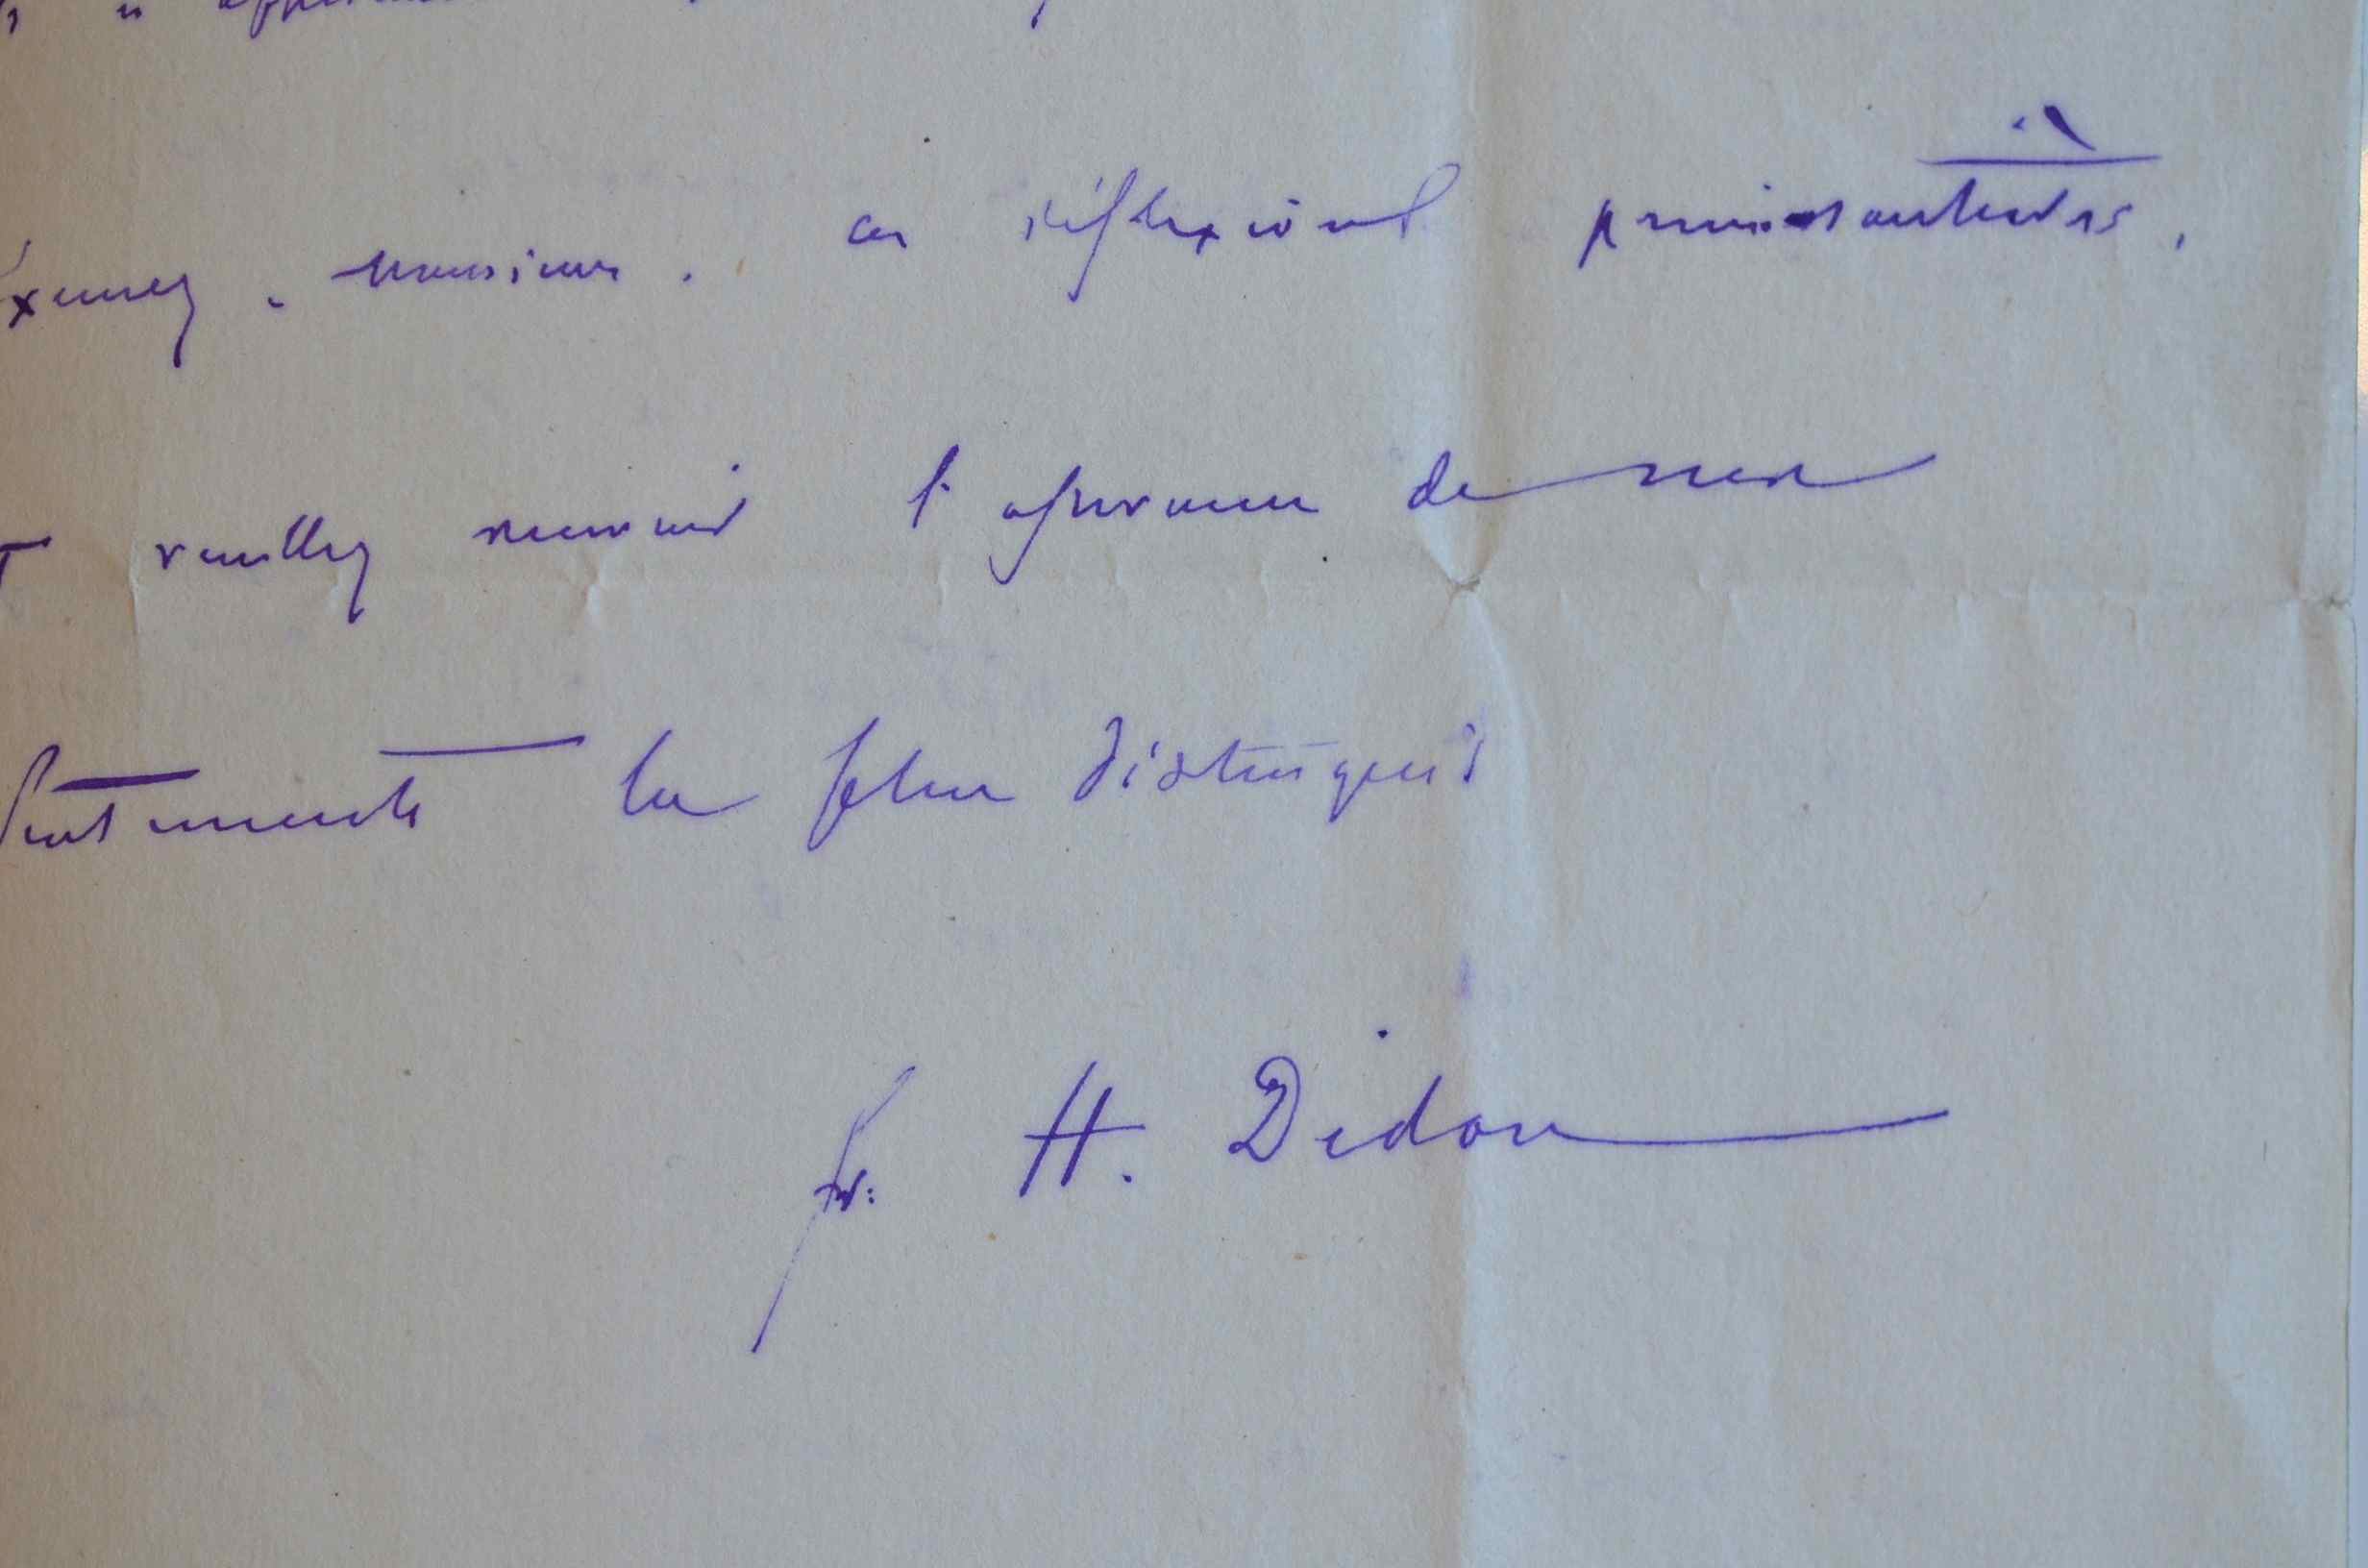 Excusez, Monsieur, ces réflexions
et veuillez recevoir l'assurance de mes
Sentiments les plus distingués
fr. H. Didon